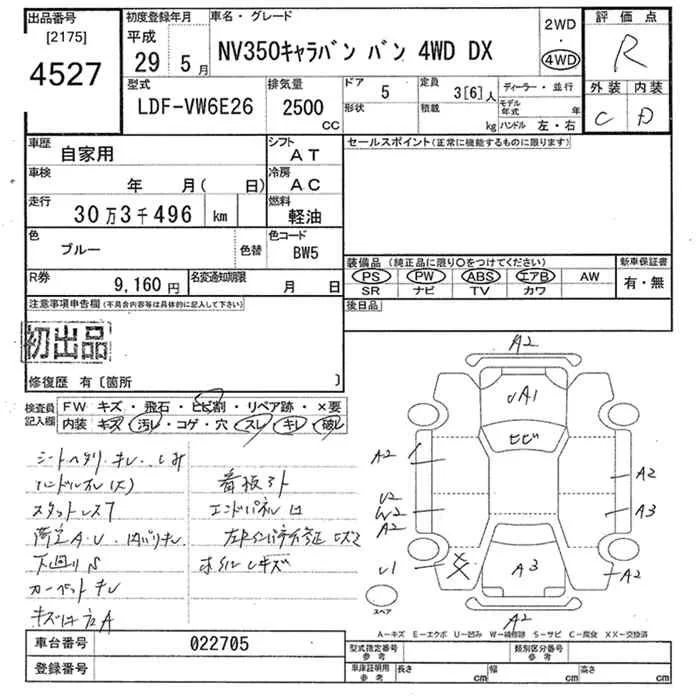 出品番号
[2175]
4527
初度登録年月
平成
29 5月
車名・グレード
NV350キャラバン バン 4WD DX
2WD
・
4WD
評価点
R
外装 内装
C D
型式
LDF-VW6E26
排気量
2500
CC
ドア
5
形状
定員
3[6]人
積載
kg
ディーラー・並行
モデル年式 年
ハンドル 左・右
車歴
自家用
シフト
AT
車検
年 月( 日)
冷房
AC
走行
30万3千496 km
燃料
軽油
色
ブルー
色替
色コード
BW5
R券
9,160円
名変通知期限
月 日
セールスポイント(正常に機能するものに限ります)
装備品(純正品に限り○をつけてください)
新車保証書
PS PW ABS エアB AW
SR ナビ TV カワ
有・無
後日品
注意事項申告欄(不具合内容等は具体的に記入して下さい)
初出品
修復歴 有〔箇所 〕
検査員記入欄
FW キズ・飛石・ヒビ割・リペア跡・×要
内装 キズ・汚レ・コゲ・穴・スレ・キレ・破レ
看板外ト
下廻りS
カーペットキレ
A2
UA1
ヒビ
A2
U2
W2
A2
U1
A2
A3
A2
A3
A2
スペア
A-キズ E-エクボ U-凹み W-補修跡 S-サビ C-腐食 XX-交換済
車台番号
022705
登録番号
型式指定番号
参考
類別区分番号
参考
車庫証明用
参考
長さ cm
幅 cm
高さ cm